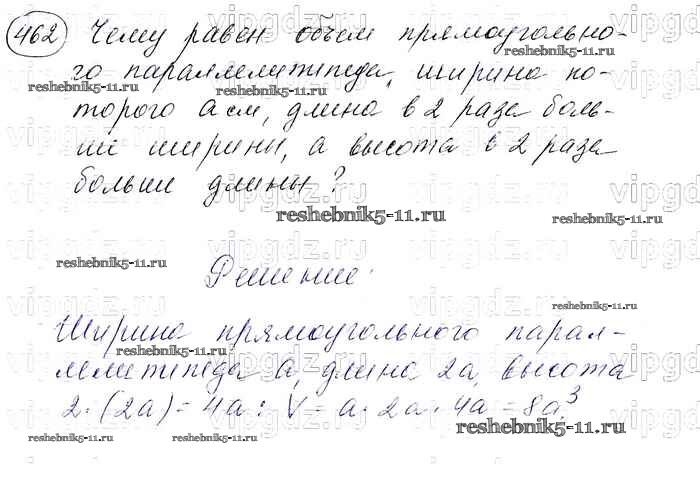 462 Чему равен объем прямоугольно-
го параллелипипеда, ширина ко-
торого а см, длина в 2 раза боль-
ше ширины, а высота в 2 раза
больше длины?
reshebnik5-11.ru
Решение:
Ширина прямоугольного парал-
лелипипеда а, длина 2а, высота
2·(2а)=4а: V=а·2а·4а=8а³
reshebnik5-11.ru
vipgdz.ru